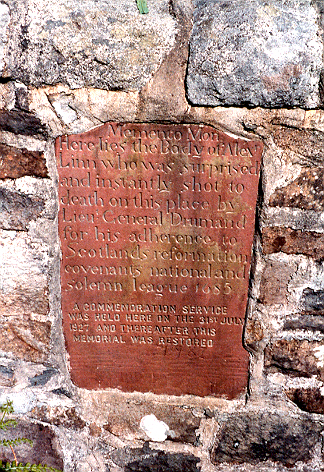 Memento Mori
Here lies the Body of Alex
Linn who was surprised
and instantly shot to
death on this place by
Lieu General Drumand
for his adherence to
Scotlands reformation
covenants national and
solemn league 1685
A COMMEMORATION SERVICE
WAS HELD HERE ON THE 31ST JULY
1827 AND THEREAFTER THIS
MEMORIAL WAS RESTORED